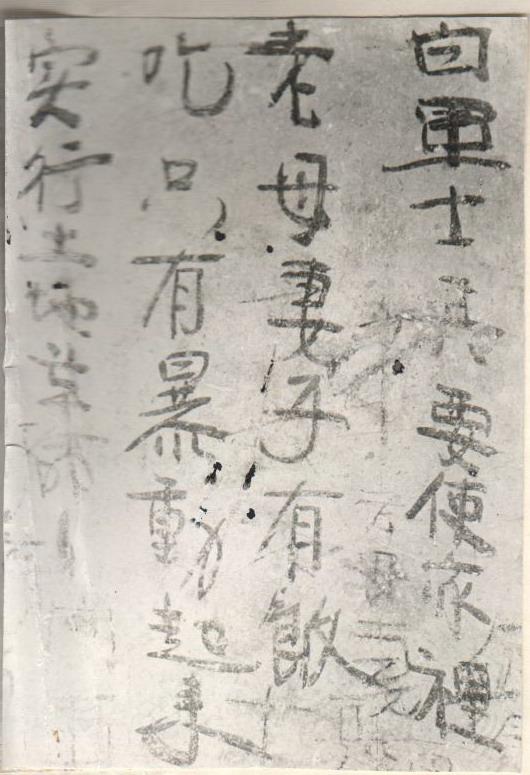 白軍士兵要使家裡
老母妻子有飯
吃只有暴動起来
实行土地革命